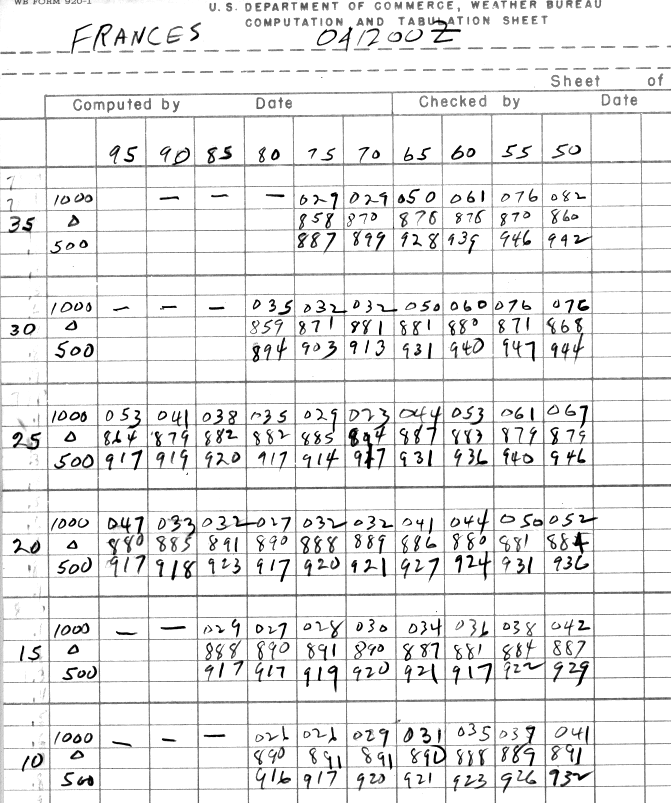 WB FORM 920-1
U. S. DEPARTMENT OF COMMERCE, WEATHER BUREAU
COMPUTATION AND TABULATION SHEET
FRANCES 041200Z
Sheet of
Computed by Date Checked by Date
95 90 85 80 75 70 65 60 55 50
1000 — — — 029 029 050 061 076 082
35 Δ 858 870 878 878 870 860
500 887 899 928 939 946 942
1000 — — — 035 032 032 050 060 076 076
30 Δ 859 871 881 881 880 871 868
500 894 903 913 931 940 947 944
1000 053 041 038 035 029 023 044 053 061 067
25 Δ 864 879 882 882 885 894 887 883 879 879
500 917 919 920 917 914 917 931 936 940 946
1000 047 033 032 027 032 032 041 044 050 052
20 Δ 880 885 891 890 888 889 886 880 881 884
500 917 918 923 917 920 921 927 924 931 936
1000 — — 029 027 028 030 034 036 038 042
15 Δ 888 890 891 890 887 881 884 887
500 917 917 919 920 921 917 922 929
1000 — — — 026 026 029 031 035 037 041
10 Δ 890 891 891 890 888 889 891
500 916 917 920 921 923 926 932